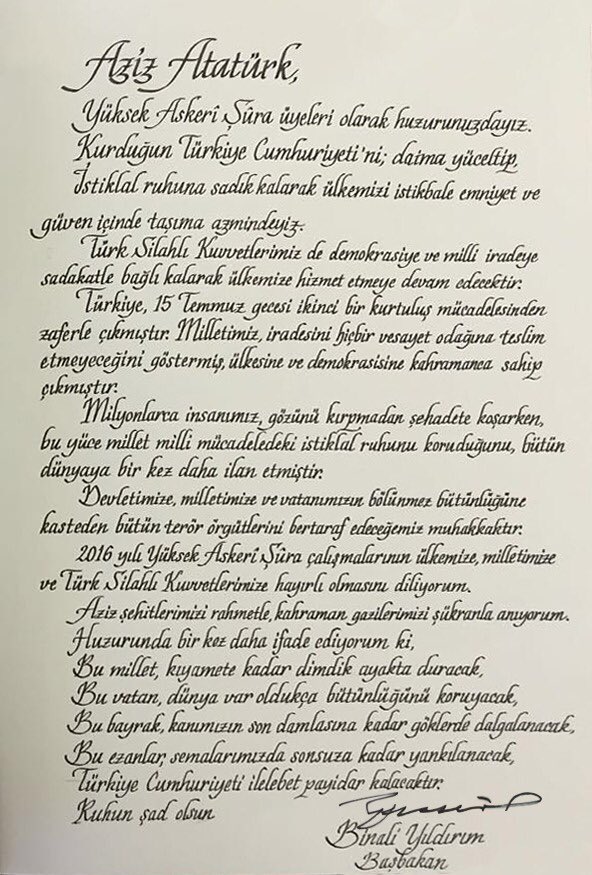 Aziz Atatürk,
Yüksek Askerî Şûra üyeleri olarak huzurunuzdayız.
Kurduğun Türkiye Cumhuriyeti'ni; daima yüceltip,
İstiklal ruhuna sadık kalarak ülkemizi istikbale emniyet ve
güven içinde taşıma azmindeyiz.
Türk Silahlı Kuvvetlerimiz de demokrasiye ve milli iradeye
sadakatle bağlı kalarak ülkemize hizmet etmeye devam edecektir.
Türkiye, 15 Temmuz gecesi ikinci bir kurtuluş mücadelesinden
zaferle çıkmıştır. Milletimiz, iradesini hiçbir vesayet odağına teslim
etmeyeceğini göstermiş, ülkesine ve demokrasisine kahramanca sahip
çıkmıştır.
Milyonlarca insanımız, gözünü kırpmadan şehadete koşarken,
bu yüce millet milli mücadeledeki istiklal ruhunu koruduğunu, bütün
dünyaya bir kez daha ilan etmiştir.
Devletimize, milletimize ve vatanımızın bölünmez bütünlüğüne
kasteden bütün terör örgütlerini bertaraf edeceğemiz muhakkaktır.
2016 yılı Yüksek Askerî Şûra çalışmalarının ülkemize, milletimize
ve Türk Silahlı Kuvvetlerimize hayırlı olmasını diliyorum.
Aziz şehitlerimizi rahmetle, kahraman gazilerimizi şükranla anıyorum.
Huzurunda bir kez daha ifade ediyorum ki,
Bu millet, kıyamete kadar dimdik ayakta duracak,
Bu vatan, dünya var oldukça bütünlüğünü koruyacak,
Bu bayrak, kanımızın son damlasına kadar göklerde dalgalanacak,
Bu ezanlar, semalarımızda sonsuza kadar yankılanacak,
Türkiye Cumhuriyeti ilelebet payidar kalacaktır.
Ruhun şad olsun
Binali Yıldırım
Başbakan